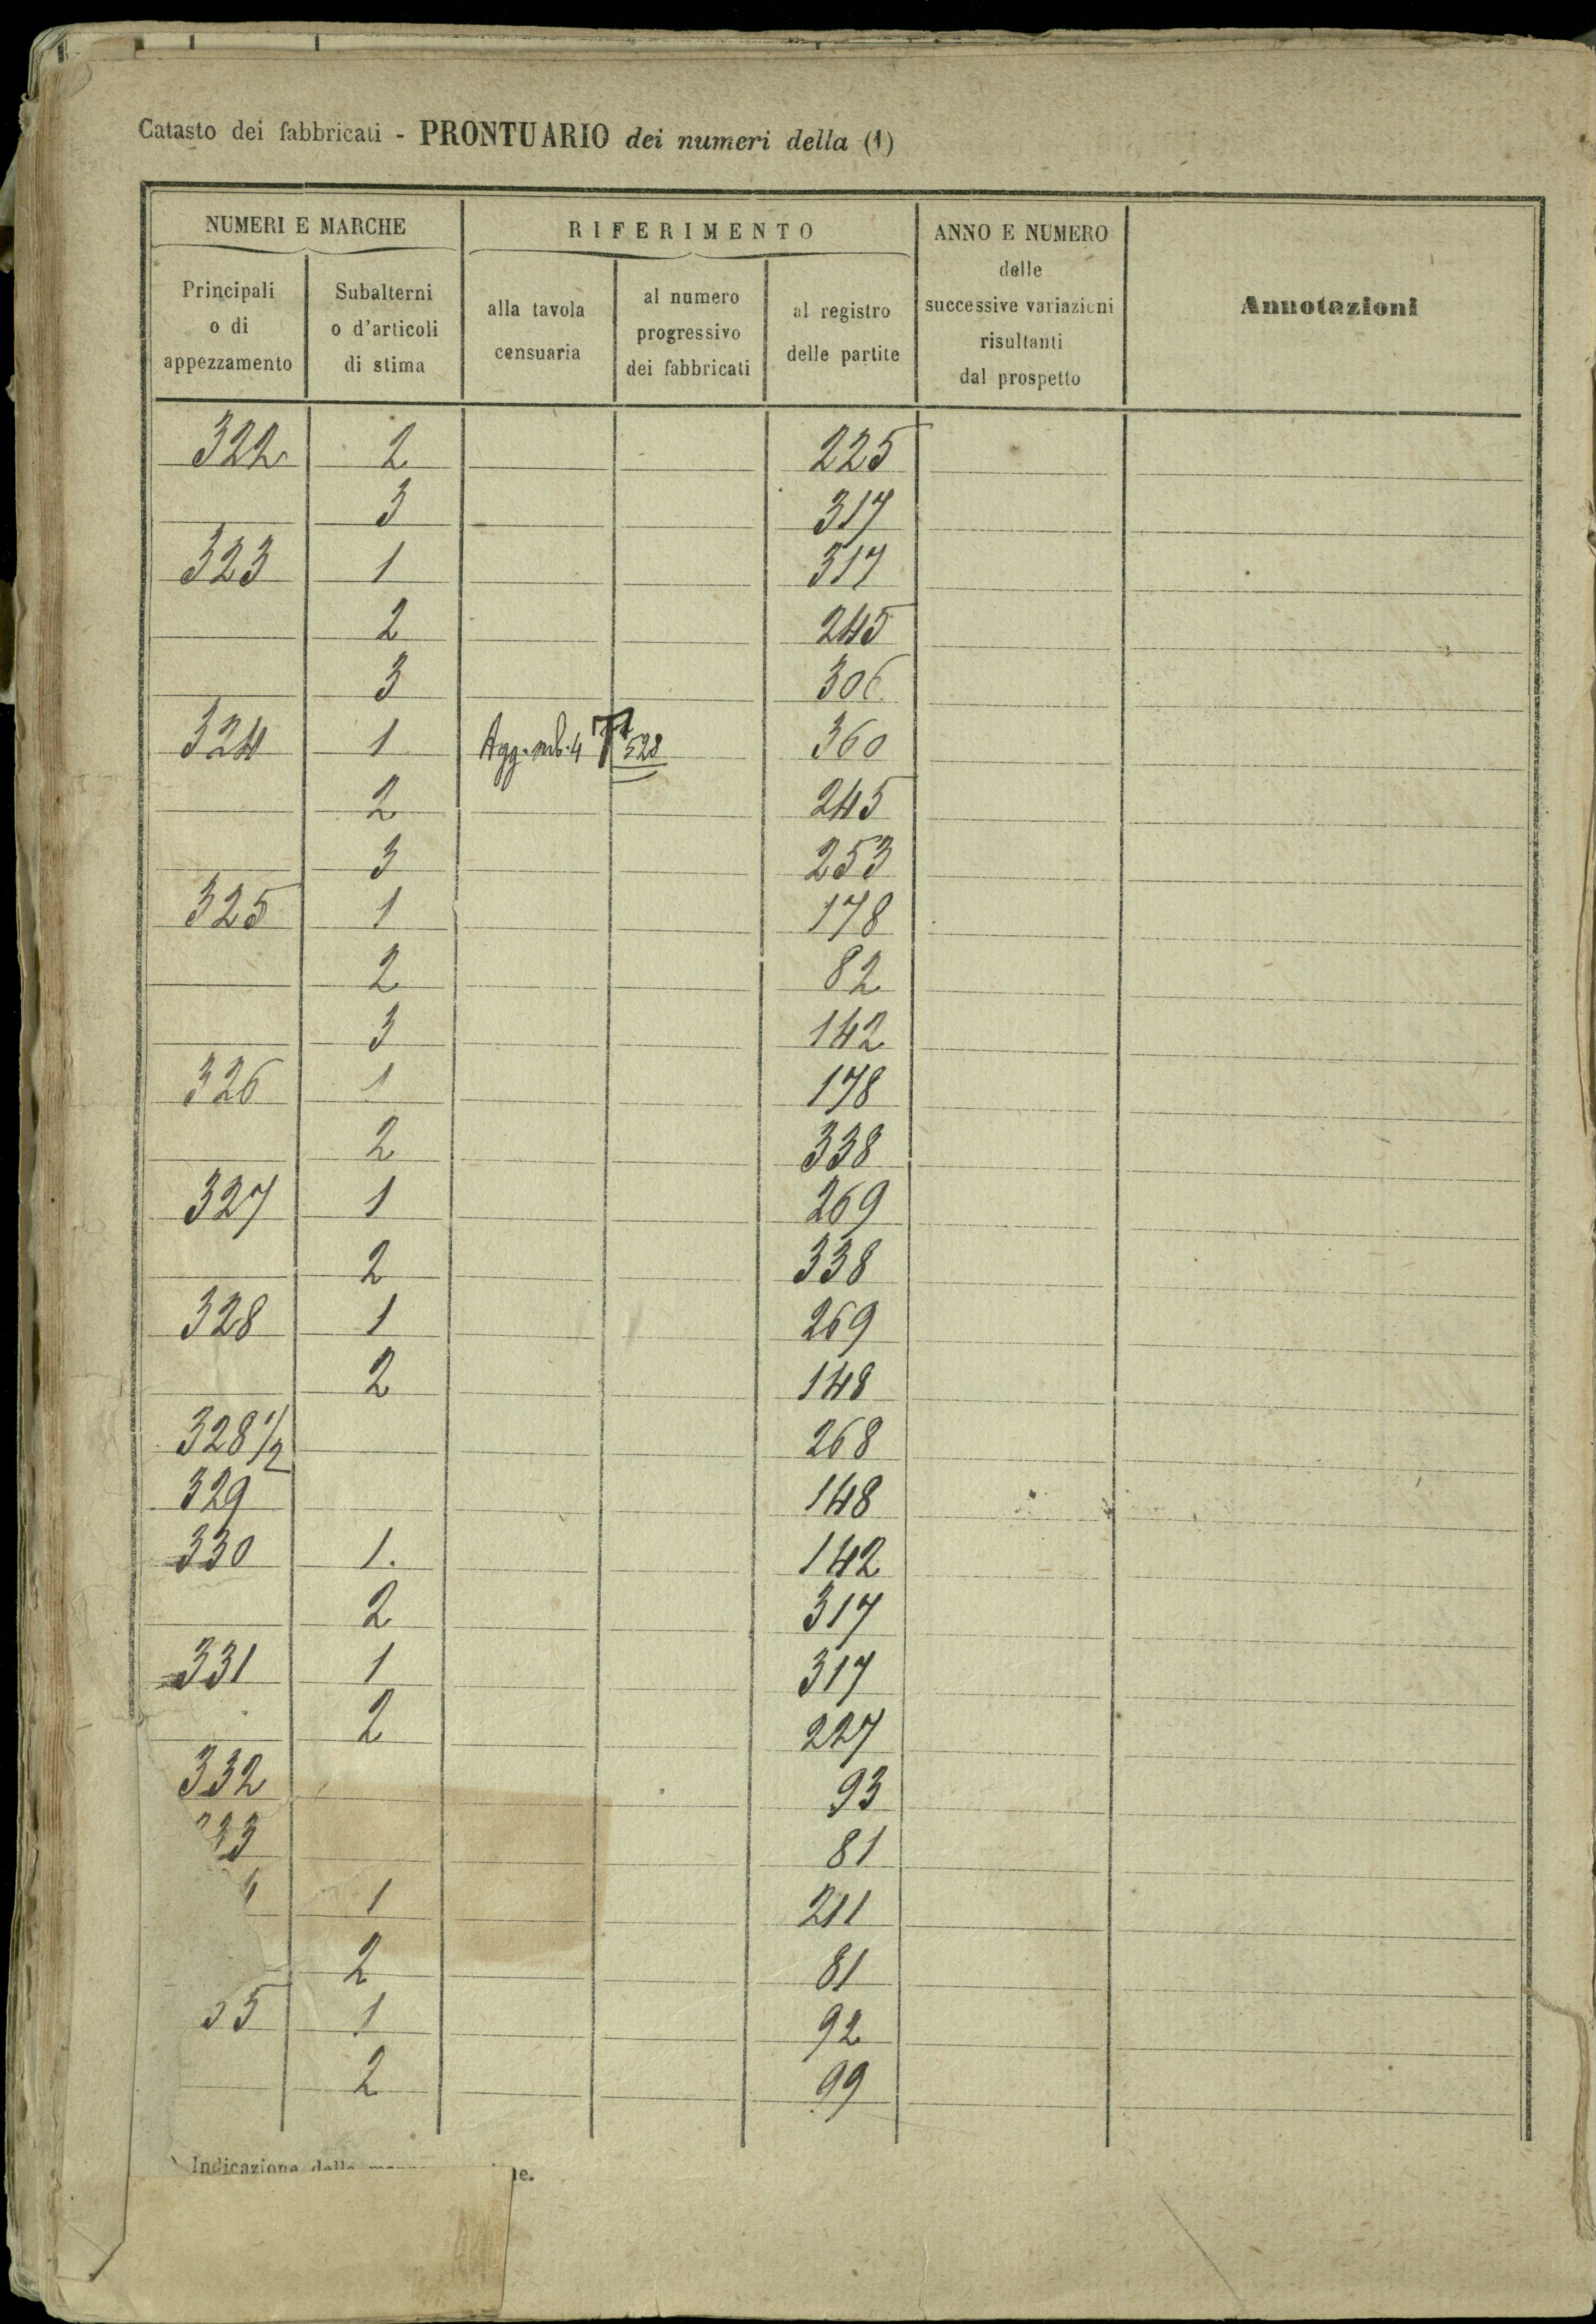 Catasto dei fabbricati - PRONTUARIO dei numeri della (1)
NUMERI E MARCHE
RIFERIMENTO
ANNO E NUMERO
delle
successive variazioni
risultanti
dal prospetto
Annotazioni
Principali
o di
appezzamento
Subalterni
o d'articoli
di stima
alla tavola
censuaria
al numero
progressivo
dei fabbricati
al registro
delle partite
322 2 225
3 317
323 1 317
2 245
3 306
324 1 Agg. 4 528 360
2 245
3 253
325 1 178
2 82
3 142
326 1 178
2 338
327 1 269
2 338
328 1 269
2 148
328 1/2 268
329 148
330 1. 142
2 317
331 1 317
2 227
332 93
33 81
1 211
2 81
5 1 92
2 99
Indicazione